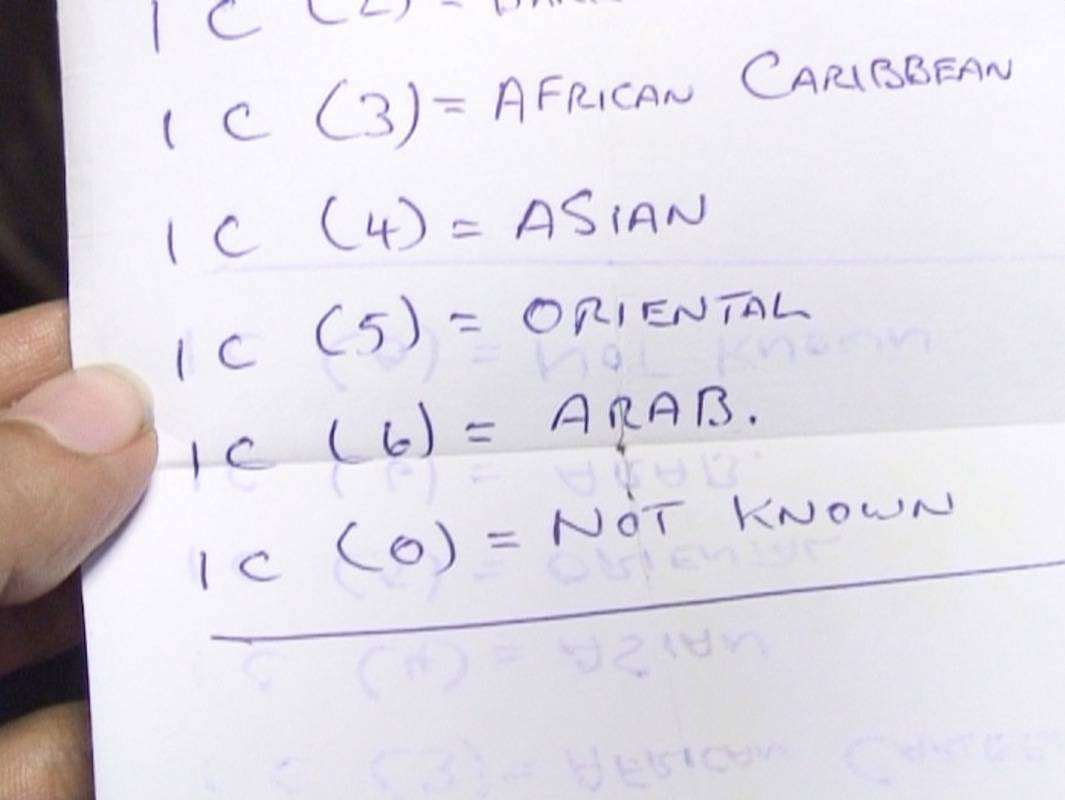 I C (2) =
I C (3) = AFRICAN CARIBBEAN
I C (4) = ASIAN
I C (5) = ORIENTAL
I C (6) = ARAB.
I C (0) = NOT KNOWN